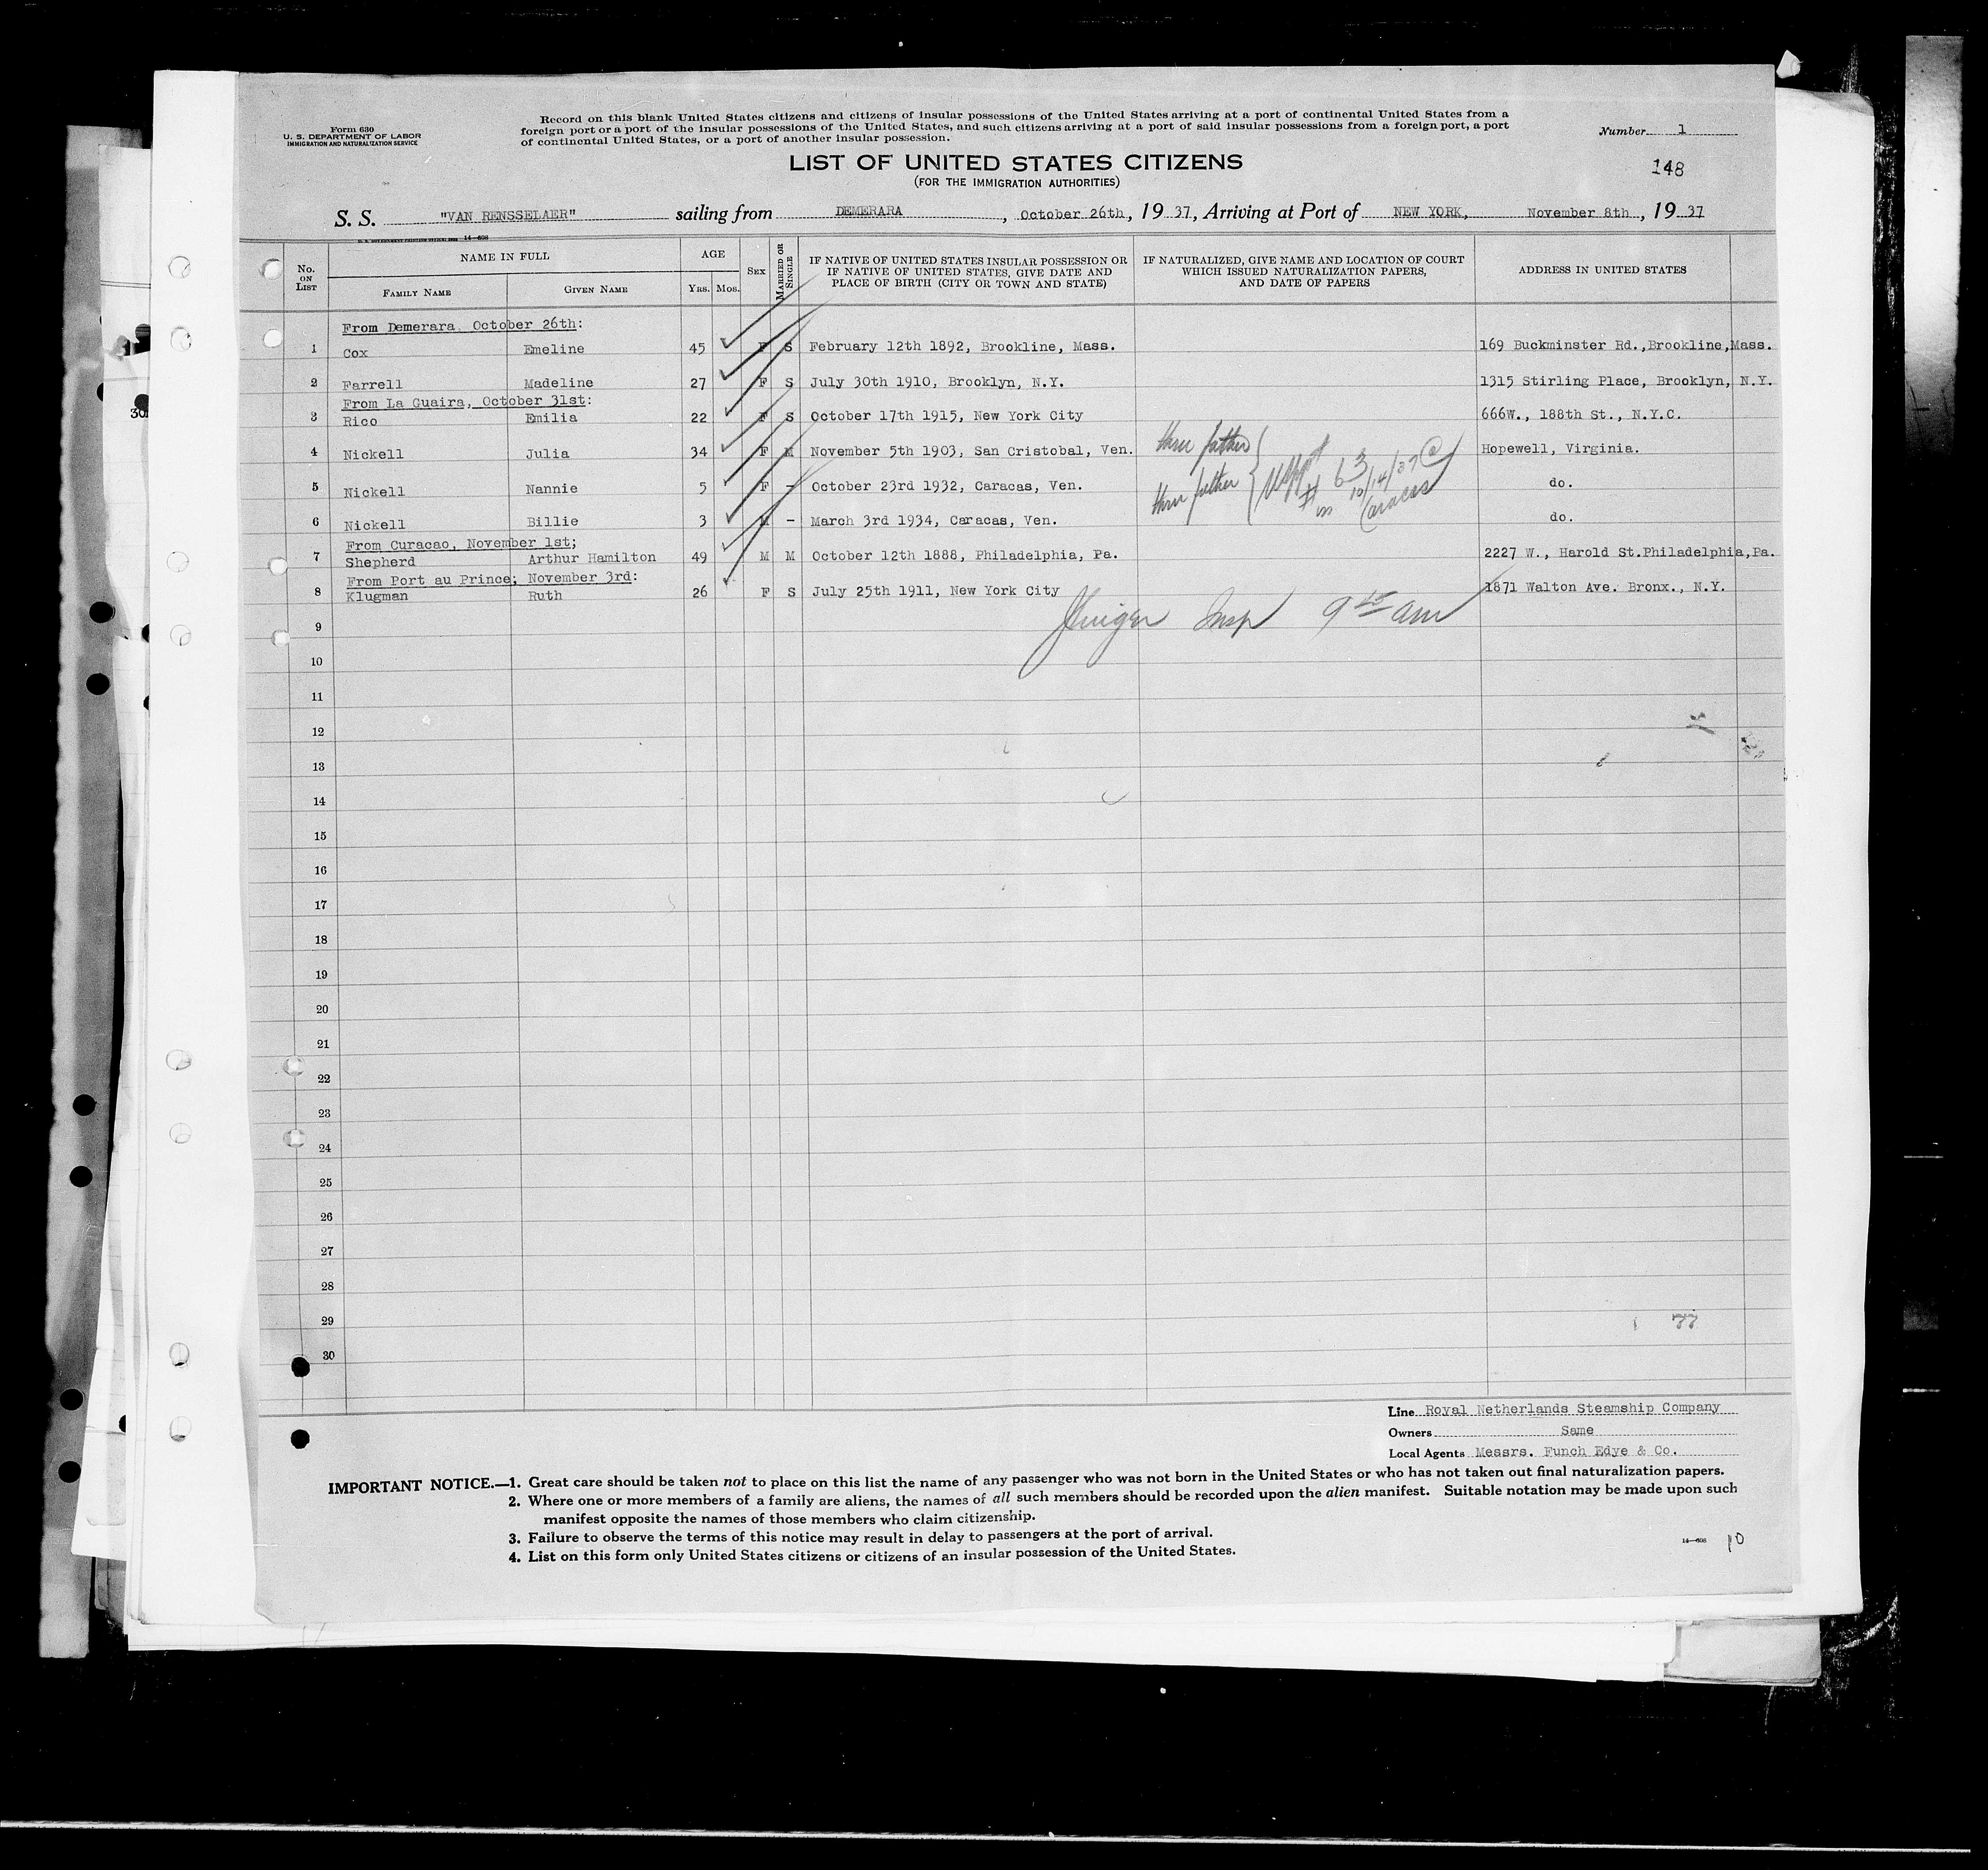 Form 630
U. S. DEPARTMENT OF LABOR
IMMIGRATION AND NATURALIZATION SERVICE
Record on this blank United States citizens and citizens of insular possessions of the United States arriving at a port of continental United States from a
foreign port or a port of the insular possessions of the United States, and such citizens arriving at a port of said insular possessions from a foreign port, a port
of continental United States, or a port of another insular possession.
Number 1
LIST OF UNITED STATES CITIZENS
(FOR THE IMMIGRATION AUTHORITIES)
148
S. S. "VAN RENSSELAER" sailing from DEMERARA, October 26th, 19 37, Arriving at Port of NEW YORK, November 8th, 19 37
No. ON LIST
NAME IN FULL
FAMILY NAME
GIVEN NAME
AGE
YRS. MOS.
SEX
MARRIED OR SINGLE
IF NATIVE OF UNITED STATES INSULAR POSSESSION OR
IF NATIVE OF UNITED STATES, GIVE DATE AND
PLACE OF BIRTH (CITY OR TOWN AND STATE)
IF NATURALIZED, GIVE NAME AND LOCATION OF COURT
WHICH ISSUED NATURALIZATION PAPERS,
AND DATE OF PAPERS
ADDRESS IN UNITED STATES
From Demerara, October 26th:
1 Cox Emeline 45 F S February 12th 1892, Brookline, Mass. 169 Buckminster Rd.,Brookline,Mass.
2 Farrell Madeline 27 F S July 30th 1910, Brooklyn, N.Y. 1315 Stirling Place, Brooklyn, N.Y.
From La Guaira, October 31st:
3 Rico Emilia 22 F S October 17th 1915, New York City 666W., 188th St., N.Y.C.
4 Nickell Julia 34 F M November 5th 1903, San Cristobal, Ven. thru father Hopewell, Virginia.
5 Nickell Nannie 5 F - October 23rd 1932, Caracas, Ven. thru father # 63 10/14/37 in Caracas do.
6 Nickell Billie 3 M - March 3rd 1934, Caracas, Ven. do.
From Curacao, November 1st;
7 Shepherd Arthur Hamilton 49 M M October 12th 1888, Philadelphia, Pa. 2227 W., Harold St.Philadelphia,Pa.
From Port au Prince; November 3rd:
8 Klugman Ruth 26 F S July 25th 1911, New York City 1871 Walton Ave. Bronx., N.Y.
Insp 9 am
9
10
11
12
13
14
15
16
17
18
19
20
21
22
23
24
25
26
27
28
29 77
30
Line Royal Netherlands Steamship Company
Owners Same
Local Agents Messrs. Funch Edye & Co.
IMPORTANT NOTICE.—1. Great care should be taken not to place on this list the name of any passenger who was not born in the United States or who has not taken out final naturalization papers.
2. Where one or more members of a family are aliens, the names of all such members should be recorded upon the alien manifest. Suitable notation may be made upon such
manifest opposite the names of those members who claim citizenship.
3. Failure to observe the terms of this notice may result in delay to passengers at the port of arrival.
4. List on this form only United States citizens or citizens of an insular possession of the United States.
14—608
10